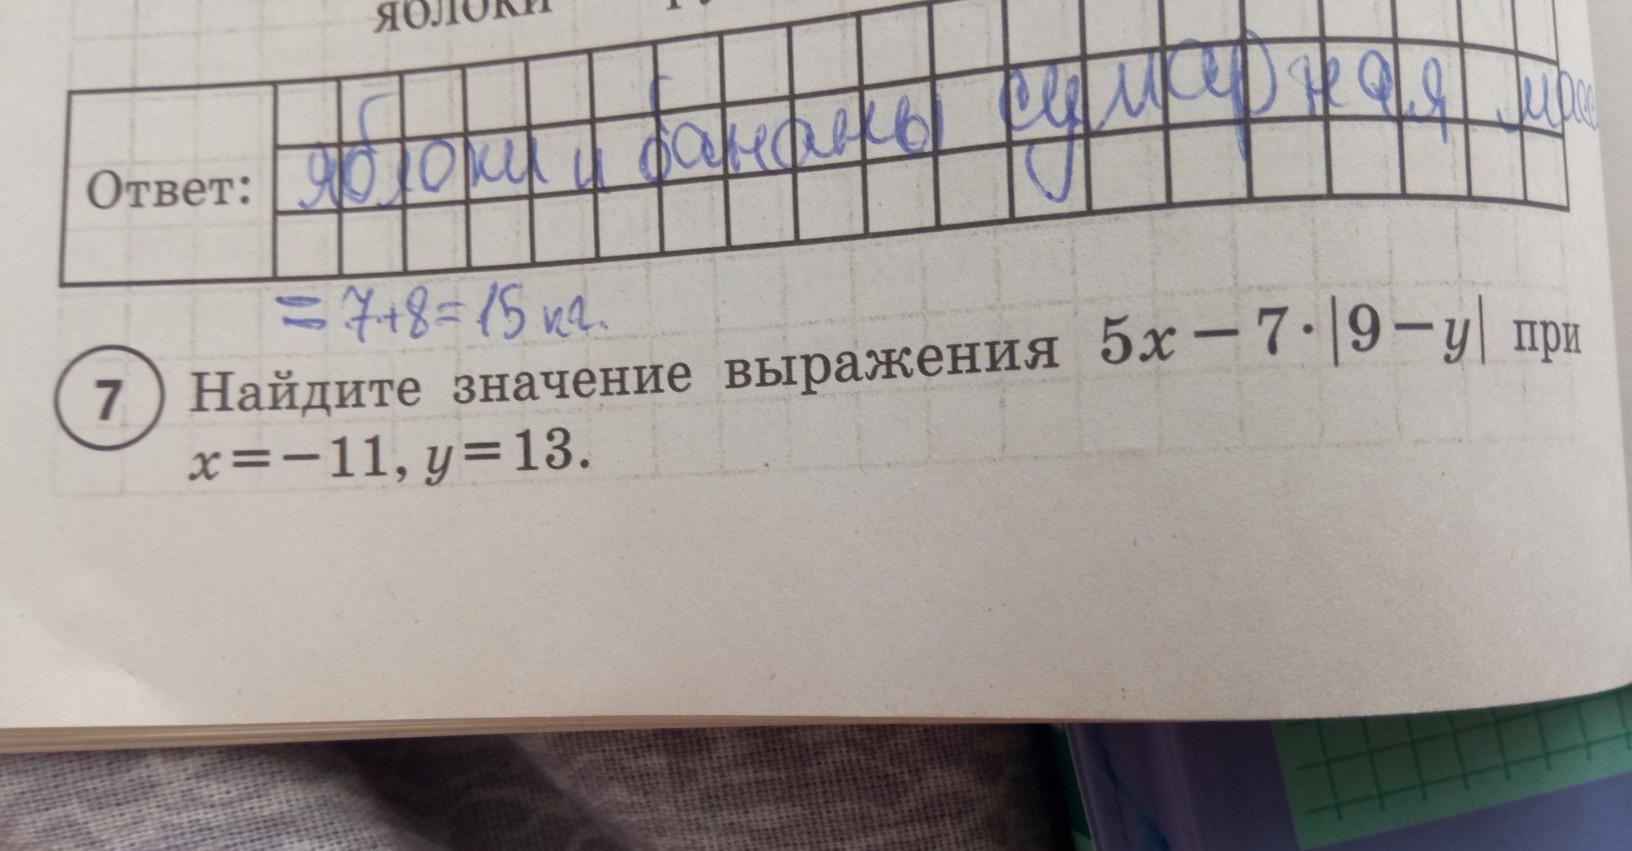 яблоки
Ответ: яблоки и бананы сумарная масс
= 7+8=15 кг.
7 Найдите значение выражения 5x − 7 · |9 − y| при
x = −11, y = 13.